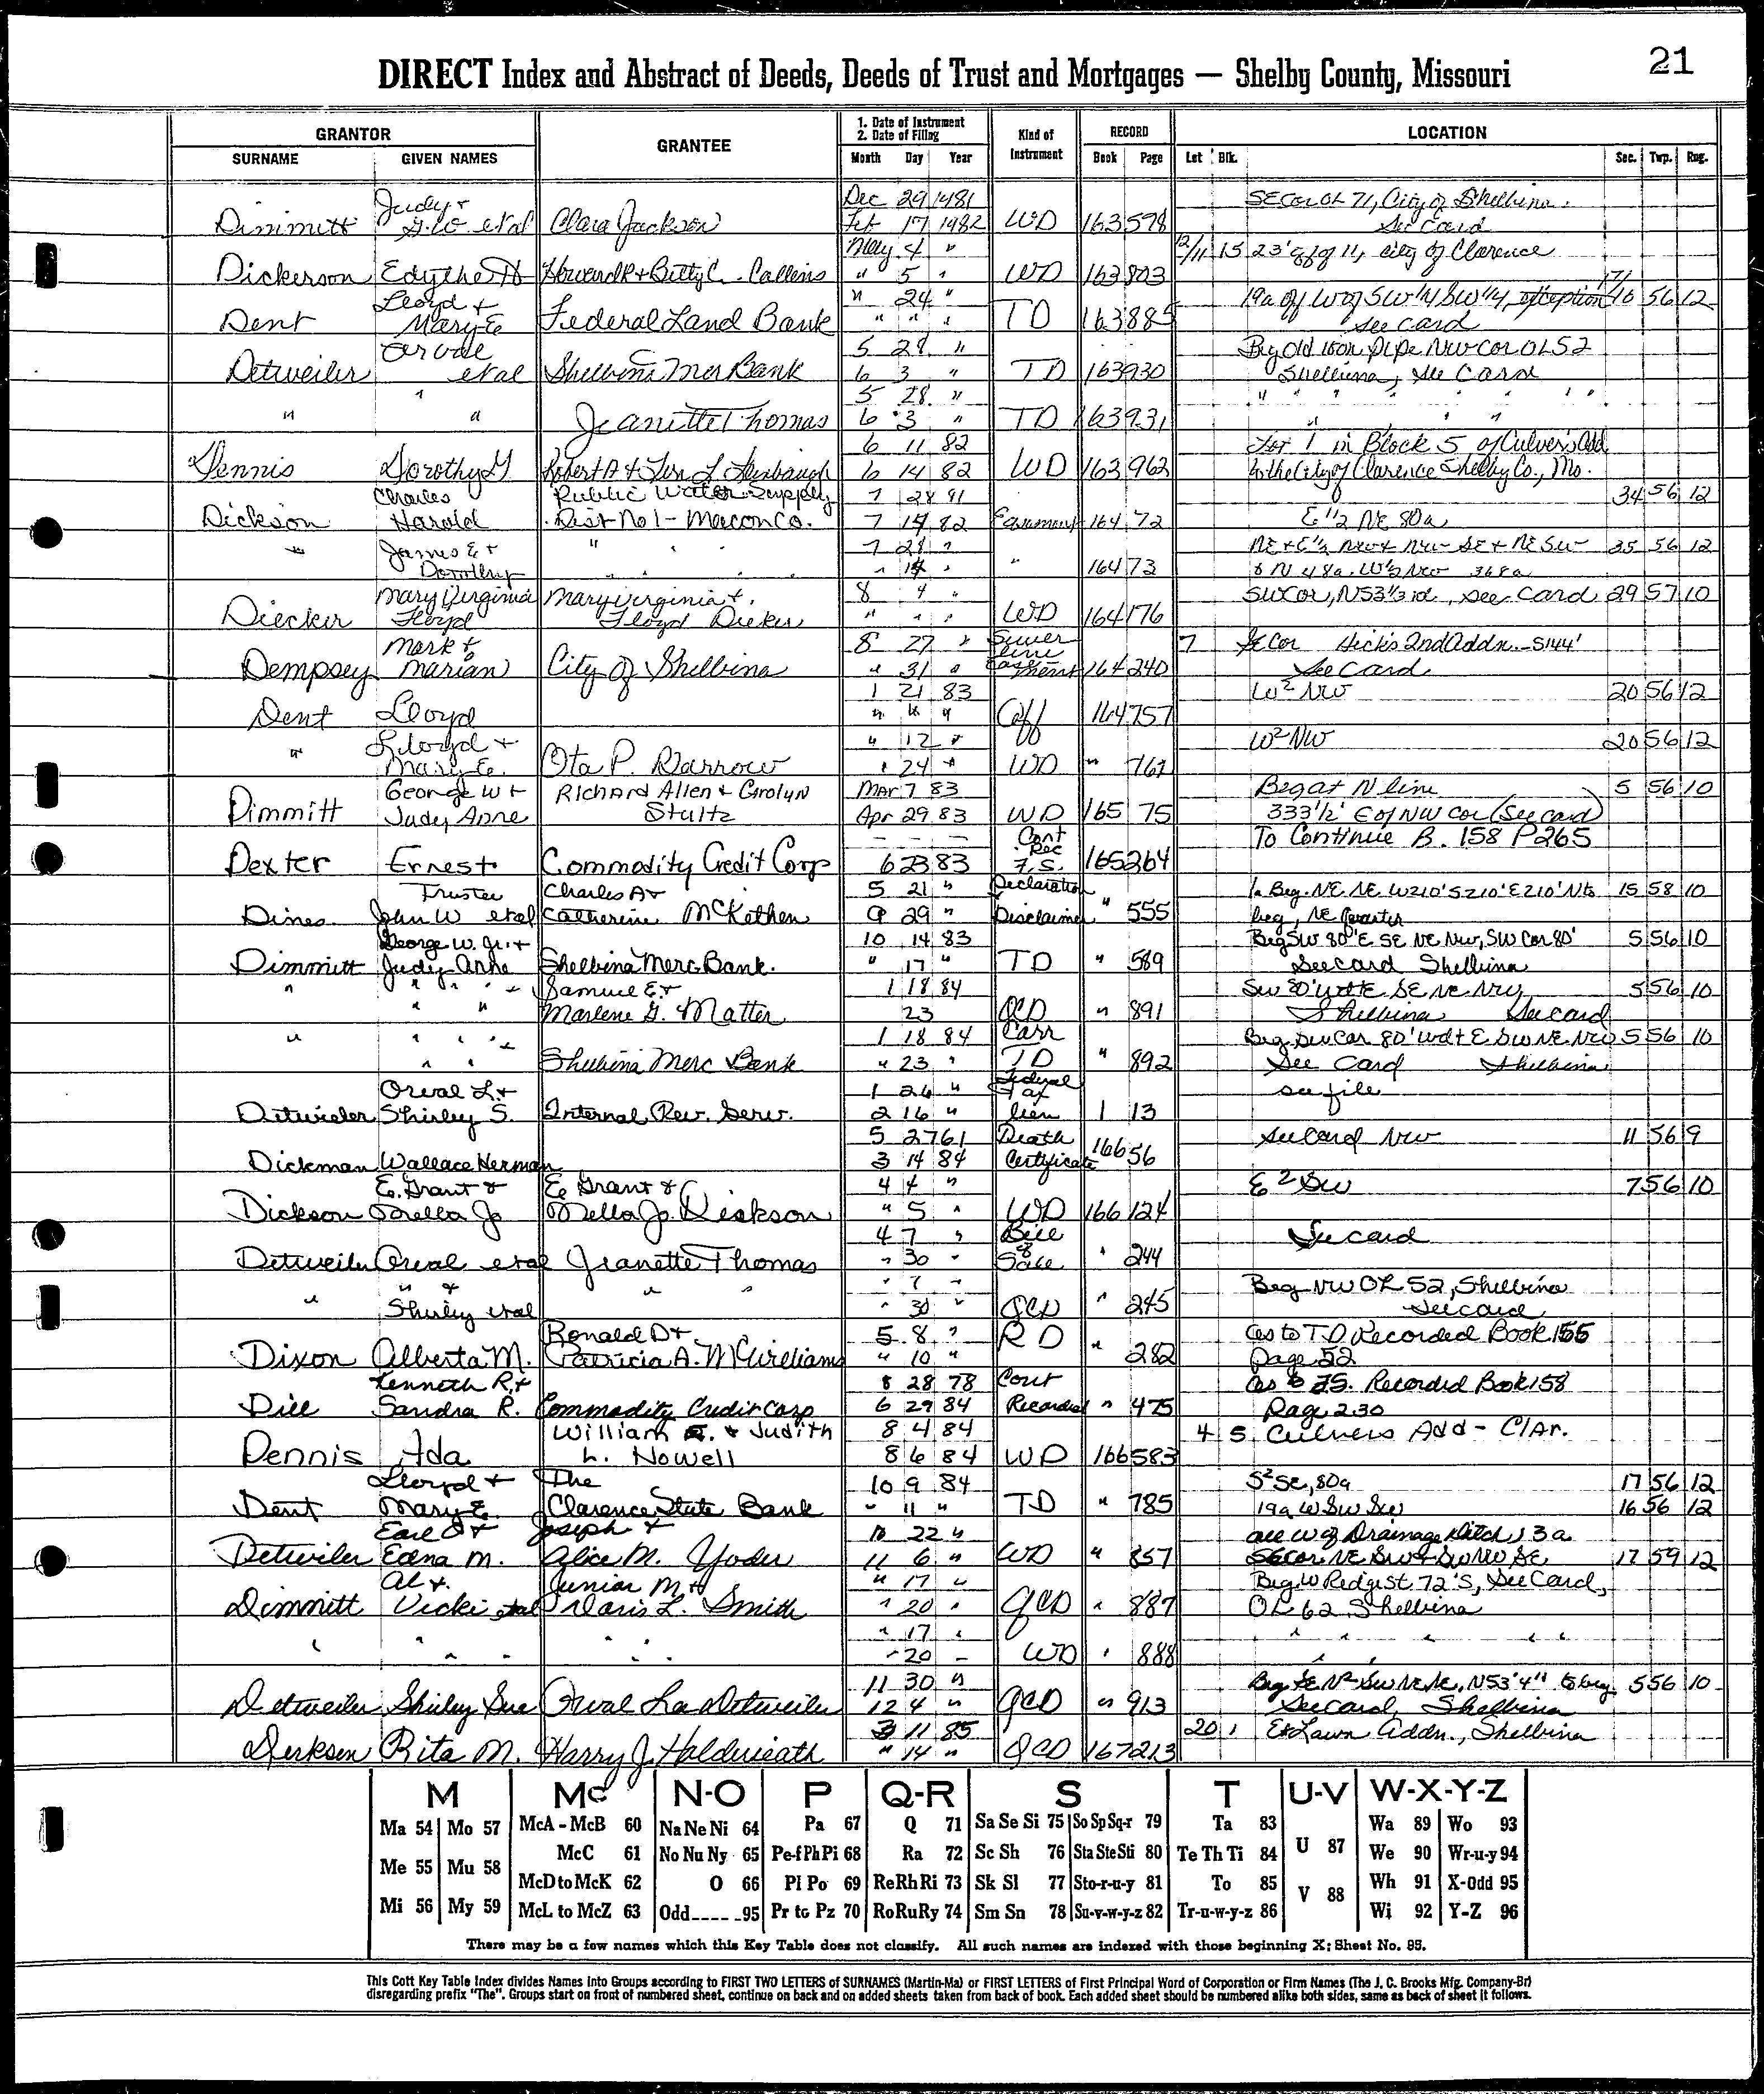 21
DIRECT Index and Abstract of Deeds, Deeds of Trust and Mortgages — Shelby County, Missouri
GRANTOR GRANTEE 1. Date of Instrument 2. Date of Filing Kind of Instrument RECORD LOCATION
SURNAME GIVEN NAMES Month Day Year Book Page Lot Blk. Sec. Twp. Rng.
Judy + Dec 29 1981 SE Cor OL 71, City of Shelbina.
Dimmitt G.W. etal Clara Jackson Feb 17 1982 WD 163 578 See Card
May 4 " 12/11 15 23' of 11, City of Clarence
Dickerson Edythe H Howard R + Betty C. Collins " 5 " WD 163 803
Lloyd + " 24 " 19a of W of SW 1/4 SW 1/4, 16 56 12
Dent Mary E Federal Land Bank " " " TD 163 885 see card
Orval 5 28 " Beg Old iron pipe NW Cor OL 52
Detweiler etal Shelbina Mer Bank 6 3 " TD 163 930 Shelbina, See Card
5 28 " " " " " " "
" " Jeanette Thomas 6 3 " TD 163 931 " " "
6 11 82 Lot 1 in Block 5 of Culver's Add
Dennis Dorothy G Robert A + 6 14 82 WD 163 962 to the City of Clarence Shelby Co., Mo.
Charles Public Water Supply 7 28 81 34 56 12
Dickson Harold Dist No 1 - Macon Co. 7 14 82 Easement 164 72 E 1/2 NE 80a
James E + " " " 7 28 " NE + E 1/2 NW + NW SE + NE SW 35 56 12
" Dorothy " " " " 14 " " 164 73 & N 48a. W 1/2 NW 368a
Mary Virginia Mary Virginia + 8 4 " SW Cor, N 53 1/3 rd, see Card 29 57 10
Diecker Floyd Floyd Dieker " " " WD 164 176
Mark + 8 27 " Sewer line 7 SE Cor Hick's 2nd Addn. - S 144'
Dempsey Marian City of Shelbina " 31 " Easement 164 240 See Card
1 21 83 W2 NW 20 56 12
Dent Lloyd " " " Aff 164 757
Lloyd + " 12 " W2 NW 20 56 12
" Mary E. Ota P. Darrow " 24 " WD " 761
George W + Richard Allen + Carolyn Mar 7 83 Beg at N line 5 56 10
Dimmitt Judy Anne Stultz Apr 29 83 WD 165 75 333 1/2' E of NW Cor (See card)
— — — Cont Rec To Continue B. 158 P 265
Dexter Ernest Commodity Credit Corp 6 23 83 F.S. 165 264
Trustee Charles A + 5 21 " Declaration 1a Beg. NE NE W210' S210' E210' N to 15 58 10
Dines John W etal Catherine McKethen 9 29 " Disclaimer " 555 beg, NE Quarter
George W. Jr. + 10 14 83 Beg SW 80' E SE NE NW, SW Cor 80' 5 56 10
Dimmitt Judy Anne Shelbina Merc. Bank. " 17 " TD " 589 See card Shelbina
" " " " + Samuel E. + 1 18 84 SW 80' Wd + E SE NE NW 5 56 10
" " Marlene G. Matter 23 QCD " 891 Shelbina See card
" " " " + 1 18 84 Corr Beg SW Cor 80' Wd + E SW NE NW 5 56 10
" " Shelbina Merc Bank " 23 " TD " 892 See Card Shelbina
Orval L + 1 26 " Federal Tax see file
Detwieler Shirley S. Internal Rev. Serv. 2 16 " lien 1 13
5 27 61 Death See Card NW 11 56 9
Dickman Wallace Herman 3 14 84 Certificate 166 56
E. Grant & E Grant & 4 4 " E2 SW 7 56 10
Dickson Mella Jo Mella Jo. Dickson " 5 " WD 166 124
4 7 " Bill of See card
Detweiler Orval etal Jeanette Thomas " 30 " Sale " 244
" & " 7 " Beg NW OL 52, Shelbina
" Shirley etal " " " 30 " QCD " 245 See card
Ronald D + 5 8 " R D As to T.D. Recorded Book 155
Dixon Alberta M. Patricia A. McWilliams " 10 " " 282 Page 52
Kenneth R. + 8 28 78 Cont As to F.S. Recorded Book 158
Dill Sandra R. Commodity Credit Corp 6 29 84 Recorded " 475 Page 230
William R. & Judith 8 4 84 4 5 Culvers Add - Clar.
Dennis Ada L. Nowell 8 6 84 WD 166 583
Lloyd + The 10 9 84 S2 SE, 80a 17 56 12
Dent Mary E. Clarence State Bank " 11 " TD " 785 19a W SW SW 16 56 12
Earl O + Joseph + 10 22 " all W of Drainage Ditch, 3a
Detwiler Edna M. Alice M. Yoder 11 6 " WD " 857 SE Cor NE SW + SW NW SE 17 59 12
Al + Junior M + " 17 " Beg W Redgest. 72' S, See Card,
Dimmitt Vicki etal Doris L. Smith " 20 " QCD " 887 OL 62 Shelbina
" 17 " " " " " " "
" " " " " " 20 – WD " 888 " "
11 30 " Beg SE N2 SW NE NE, N 53'4" to beg 5 56 10
Detweiler Shirley Sue Orval Lee Detweiler 12 4 " QCD " 913 See card, Shelbina
3 11 85 20 1 Et Lawn Addn., Shelbina
Derksen Rita M. Harry J. Holdmeath " 14 " QCD 167 213
M Mc N-O P Q-R S T U-V W-X-Y-Z
Ma 54 Mo 57 McA - McB 60 Na Ne Ni 64 Pa 67 Q 71 Sa Se Si 75 So Sp Sq-r 79 Ta 83 U 87 Wa 89 Wo 93
Me 55 Mu 58 McC 61 No Nu Ny 65 Pe-f Ph Pi 68 Ra 72 Sc Sh 76 Sta Ste Sti 80 Te Th Ti 84 V 88 We 90 Wr-u-y 94
McD to McK 62 O 66 Pl Po 69 Re Rh Ri 73 Sk Sl 77 Sto-r-u-y 81 To 85 Wh 91 X-Odd 95
Mi 56 My 59 McL to McZ 63 Odd-----95 Pr to Pz 70 Ro Ru Ry 74 Sm Sn 78 Su-v-w-y-z 82 Tr-u-w-y-z 86 Wi 92 Y-Z 96
There may be a few names which this Key Table does not classify. All such names are indexed with those beginning X; Sheet No. 95.
This Cott Key Table Index divides Names into Groups according to FIRST TWO LETTERS of SURNAMES (Martin-Ma) or FIRST LETTERS of First Principal Word of Corporation or Firm Names (The J. C. Brooks Mfg. Company-Br)
disregarding prefix "The". Groups start on front of numbered sheet, continue on back and on added sheets taken from back of book. Each added sheet should be numbered alike both sides, same as back of sheet it follows.